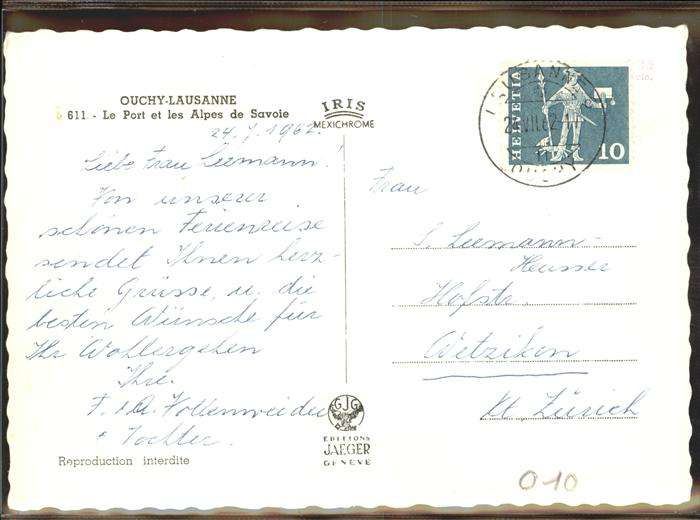 OUCHY-LAUSANNE
611 - Le Port et les Alpes de Savoie
IRIS
MEXICHROME
24. 7. 1962.
Liebe Frau Leemann!
Von unserer
schönen Ferienreise
sendet Ihnen herz-
liche Grüsse, u. die
besten Wünsche für
Ihr Wohlergehen
Ihre
F. & A.
Tochter.
Reproduction interdite
GJG
EDITIONS
JAEGER
GENÈVE
HELVETIA
10
LAUSANNE
VII.62
OUCHY
Frau
S. Leemann-
Heusser
Hofstr.
Wetzikon
Kt. Zürich
0-10